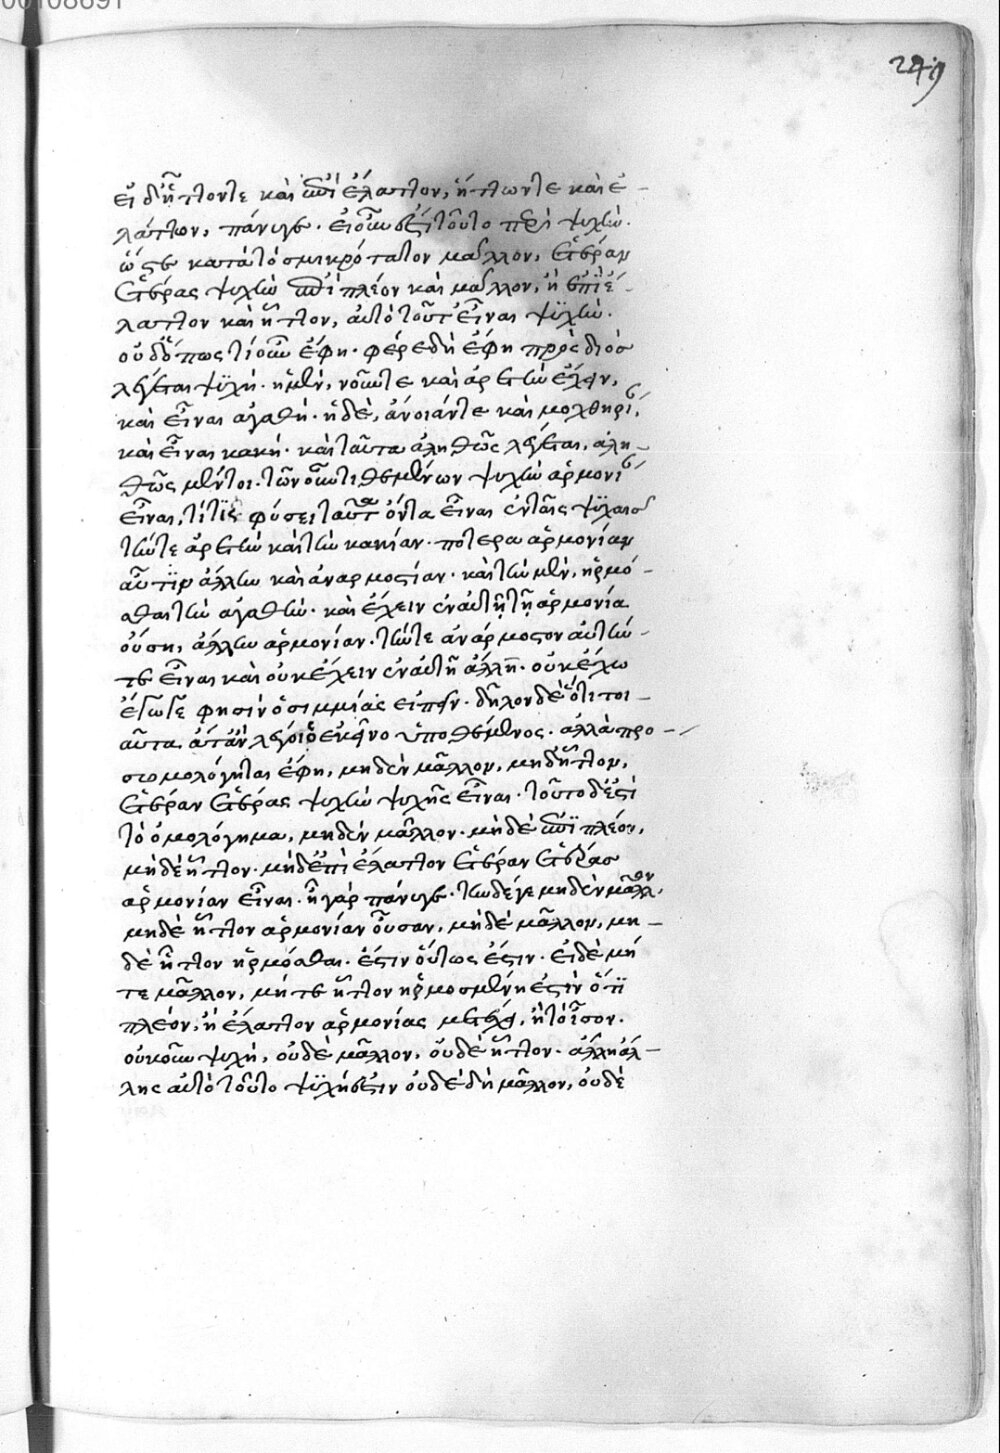 00108691
249
εἰ δ' ἧττόν τε καὶ ἐπὶ ἔλαττον, ἥττων τε καὶ ἐ-
λάττων, πάνυ γε. εἰ οὖν ἐστὶ τοῦτο περὶ ψυχήν.
ὥστε κατὰ τὸ σμικρότατον μᾶλλον, ἑτέραν
ἑτέρας ψυχὴν ἐπὶ πλέον καὶ μᾶλλον, ἢ ἐπὶ ἔ-
λαττον καὶ ἧττον, αὐτὸ τοῦτ' εἶναι ψυχήν.
οὐδ' ὁπωστιοῦν ἔφη. φέρε δὴ ἔφη πρὸς διὸς
λέγεται ψυχὴ. ἡ μὲν, νοῦν τε καὶ ἀρετὴν ἔχειν,
καὶ εἶναι ἀγαθή. ἡ δὲ, ἄνοιάν τε καὶ μοχθηρί,
καὶ εἶναι κακή. καὶ ταῦτα ἀληθῶς λέγεται, ἀλη-
θῶς μέντοι. τῶν οὖν τιθεμένων ψυχὴν ἁρμονί
εἶναι, τί τις φύσει ταῦτα ὄντα εἶναι ἐν ταῖς ψυχαῖς
τήν τε ἀρετὴν καὶ τὴν κακίαν. πότερα ἁρμονίαν
αὖ τιν ἄλλην καὶ ἀναρμοστίαν. καὶ τὴν μὲν, ἡρμό-
σθαι τὴν ἀγαθὴν. καὶ ἔχειν ἐν αὐτῇ τῇ ἁρμονία
οὔση, ἄλλην ἁρμονίαν. τήν τε ἀνάρμοστον αὐτήν-
τε εἶναι καὶ οὐκ ἔχειν ἐν αὐτῇ ἄλλην. οὐκ ἔχω
ἔγωγε φησὶν ὁ σιμμίας εἰπεῖν. δῆλον δὲ ὅτι τοι-
αῦτα ἄττ' ἂν λέγοι ὁ ἐκεῖνο ὑποθέμενος. ἀλλὰ προ-
ωμολόγηται ἔφη, μηδὲν μᾶλλον, μηδ' ἧττον,
ἑτέραν ἑτέρας ψυχὴν ψυχῆς εἶναι. τοῦτο δέ ἐστι
τὸ ὁμολόγημα, μηδὲν μᾶλλον. μηδὲ ἐπὶ πλέον,
μηδὲ ἧττον. μηδ' ἐπὶ ἔλαττον ἑτέραν ἑτέρας
ἁρμονίαν εἶναι. ἦ γάρ πάνυ γε. τὴν δέ γε μηδὲν μᾶλλον,
μηδὲ ἧττον ἁρμονίαν οὖσαν, μηδὲ μᾶλλον, μη-
δὲ ἧττον ἡρμόσθαι. ἔστιν οὕτως ἔστιν. εἰ δὲ μή
τε μᾶλλον, μήτε ἧττον ἡρμοσμένη ἐστὶν ὅτι
πλέον, ἢ ἔλαττον ἁρμονίας μετέχει, ἢ τὸ ἶσον.
οὐκοῦν ψυχὴ, οὐδὲ μᾶλλον, οὐδὲ ἧττον. ἄλλη ἀλ-
λης αὐτὸ τοῦτο ψυχή ἐστιν οὐδὲ δὴ μᾶλλον, οὐδὲ